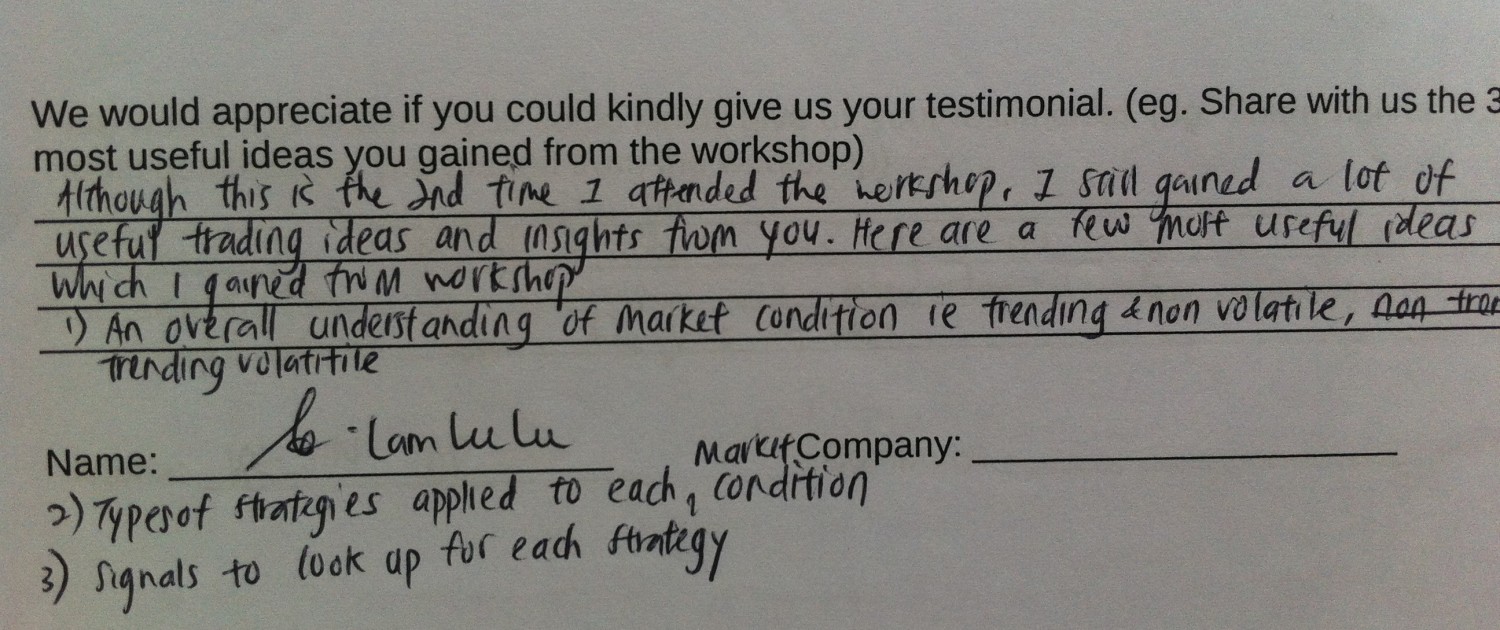 We would appreciate if you could kindly give us your testimonial. (eg. Share with us the 3
most useful ideas you gained from the workshop)
Although this is the 2nd time I attended the workshop, I still gained a lot of
useful trading ideas and insights from you. Here are a few most useful ideas
which I gained from workshop
1) An overall understanding of market condition ie trending & non volatile, non
trending volatitile
Name: Lam Lu Lu Company:
2) Types of strategies applied to each, Market condition
3) Signals to look up for each strategy